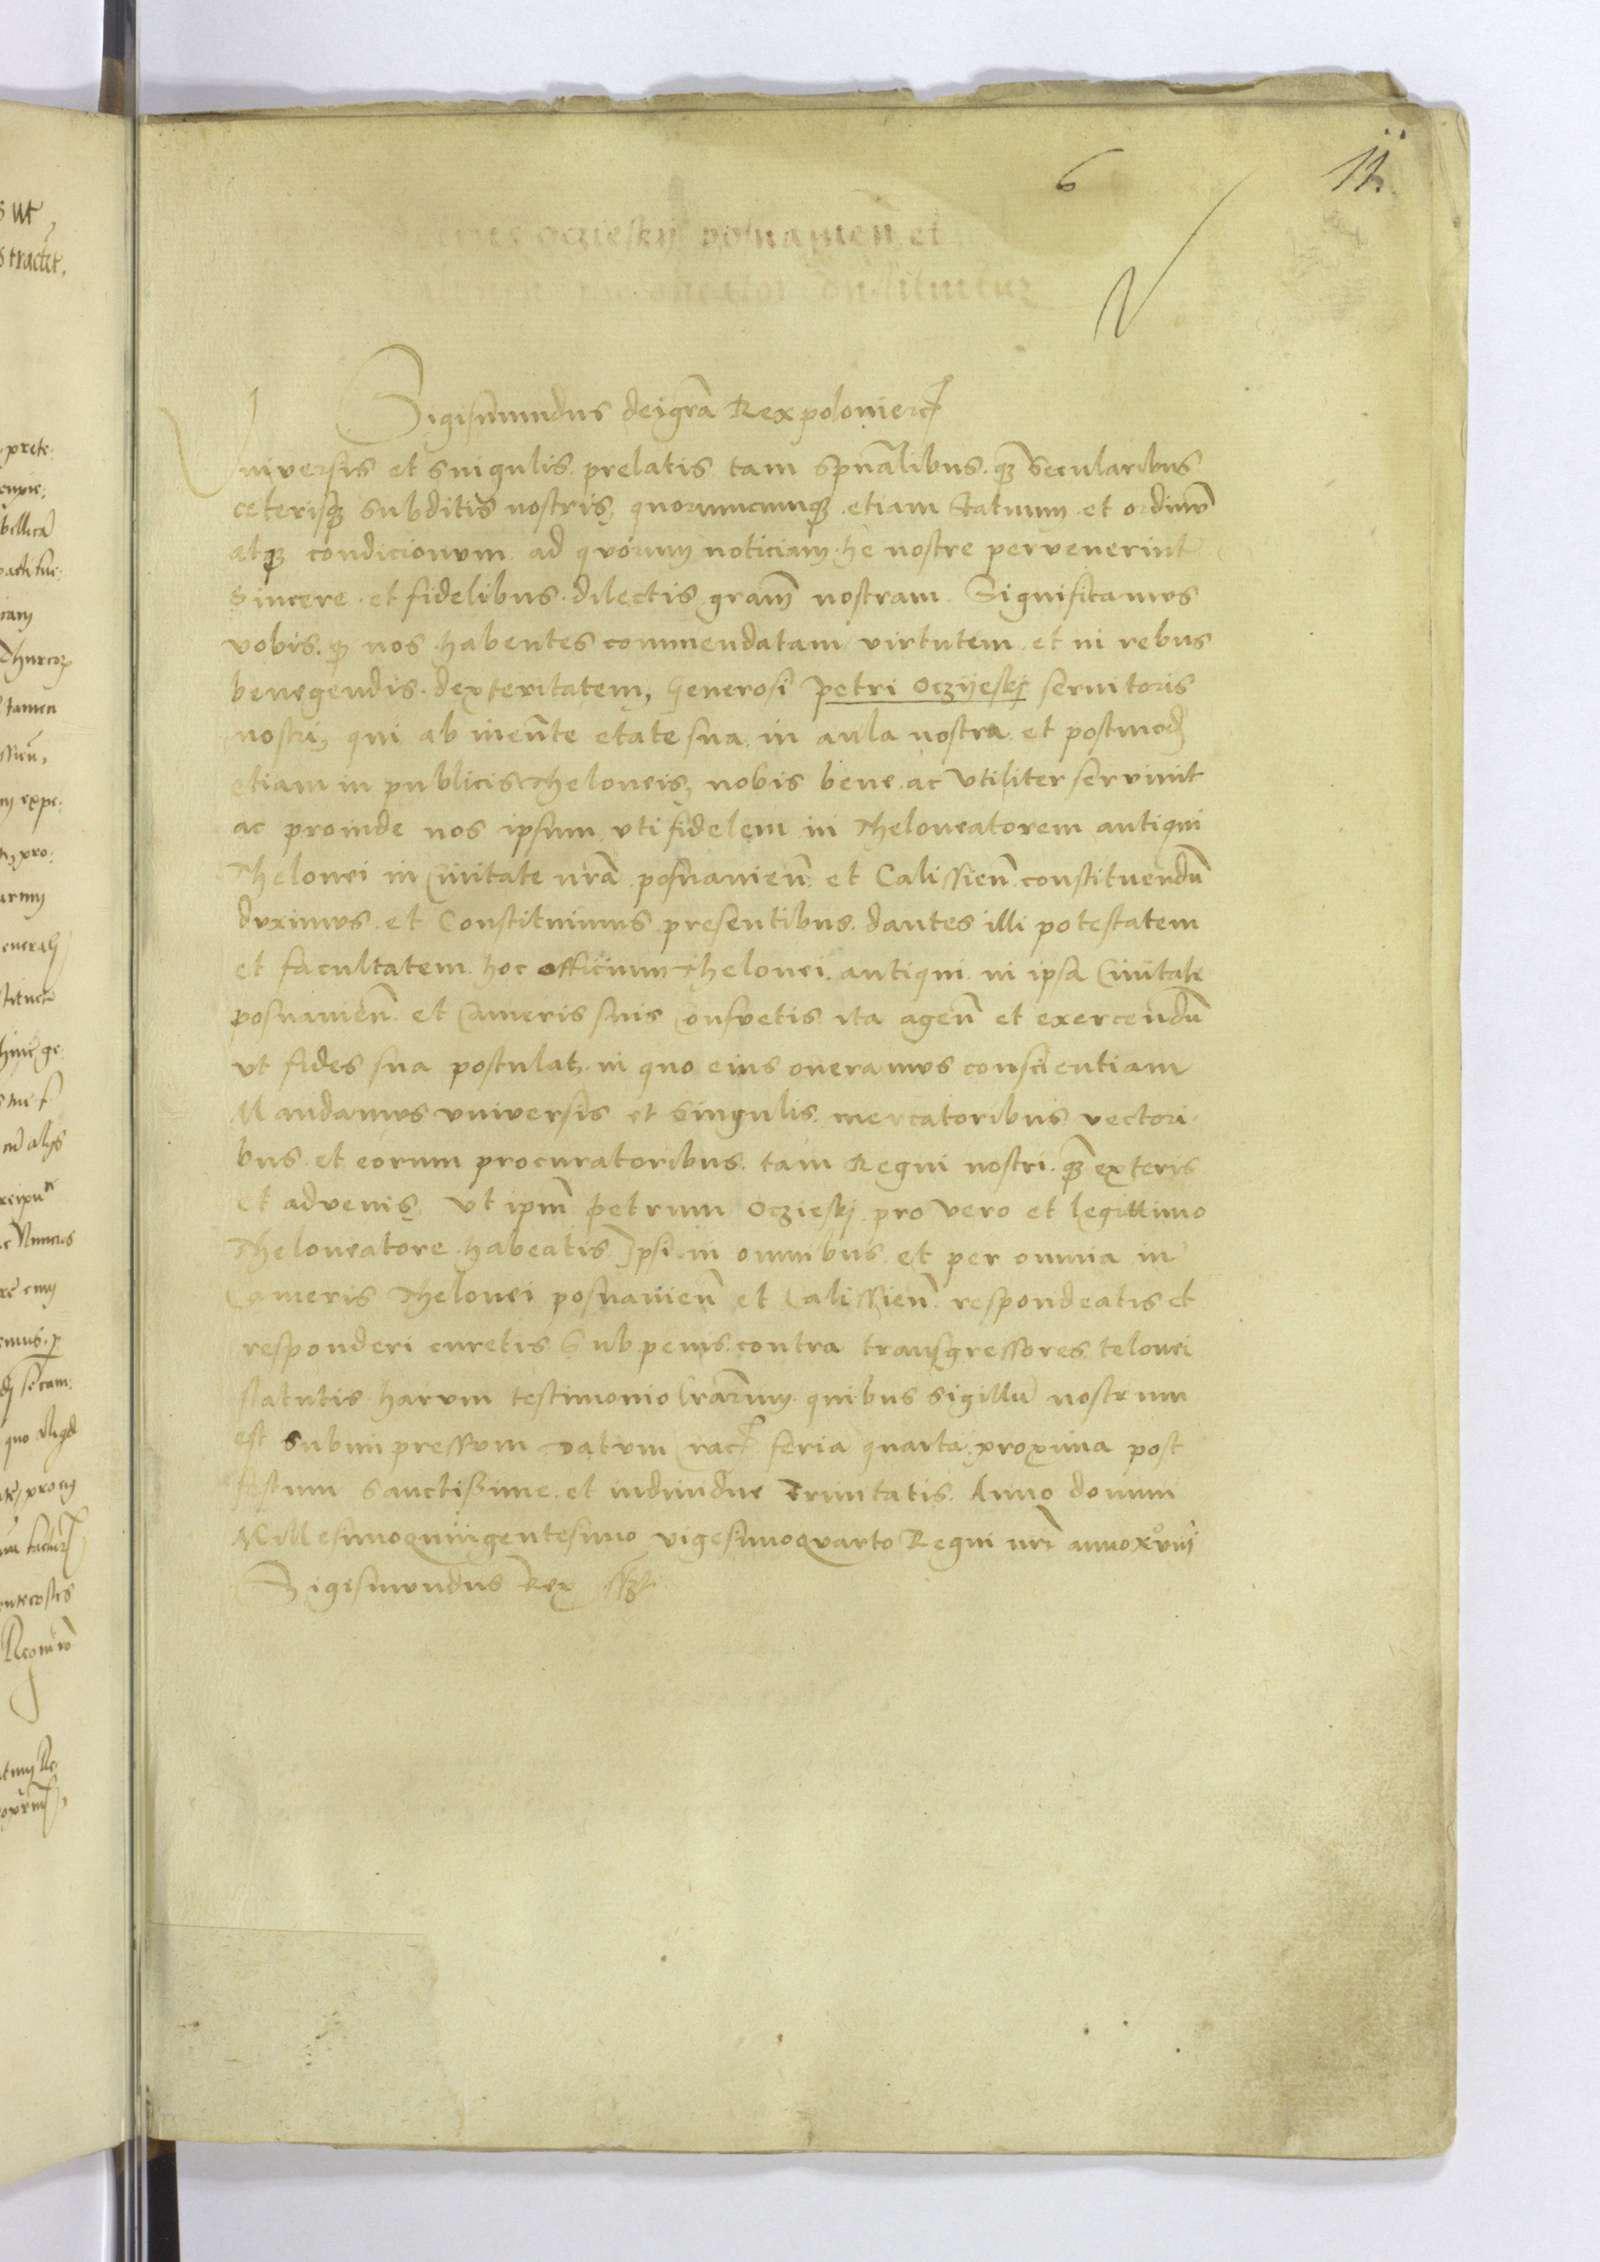 6
11.
oczieskij posnanien et
constituitur
Sigismundus dei gra Rex polonie etc
Universis et singulis prelatis tam spualibus qz secularibus
ceterisqz subditis nostris quorumcumqz etiam statuum et ordinu
atqz condicionum ad quorum noticiam he nostre pervenerint
Sincere et fidelibus dilectis gram nostram Significamus
vobis qz nos habentes commendatam virtutem et in rebus
benegendis dexteritatem, Generosi petri Oczyeskj servitoris
nostri, qui ab ineunte etate sua in aula nostra et postmod
etiam in publicis Theloneis, nobis bene ac utiliter servivit
ac proinde nos ipsum uti fidelem in Theloneatorem antiqui
Thelonei in Civitate nra posnanien et Calissien constituendu
duximus et Constituimus presentibus dantes illi potestatem
et facultatem hoc officium Thelonei antiqui in ipsa Civitate
posnanien et Cameris suis Consvetis ita agen et exercendu
ut fides sua postulat in quo eius oneramus conscientiam
Mandamus universis et singulis mercatoribus vectori
bus et eorum procuratoribus tam Regni nostri qz exteris
et advenis, Ut ipm petrum Oczieskj pro vero et legittimo
Theloneatore habeatis Ipsi in omnibus et per omnia in
Cameris Thelonei posnanien et Calissien respondeatis et
responderi curetis Sub penis contra transgressores telonei
statutis harum testimonio lrarum quibus sigillu nostrum
est subimpressum Datum Crac feria quarta proxima post
festum Sanctissime et individue Trinitatis Anno domini
Millesimoquingentesimo vigesimoquarto Regni nri anno xviii
Sigismundus Rex sszt